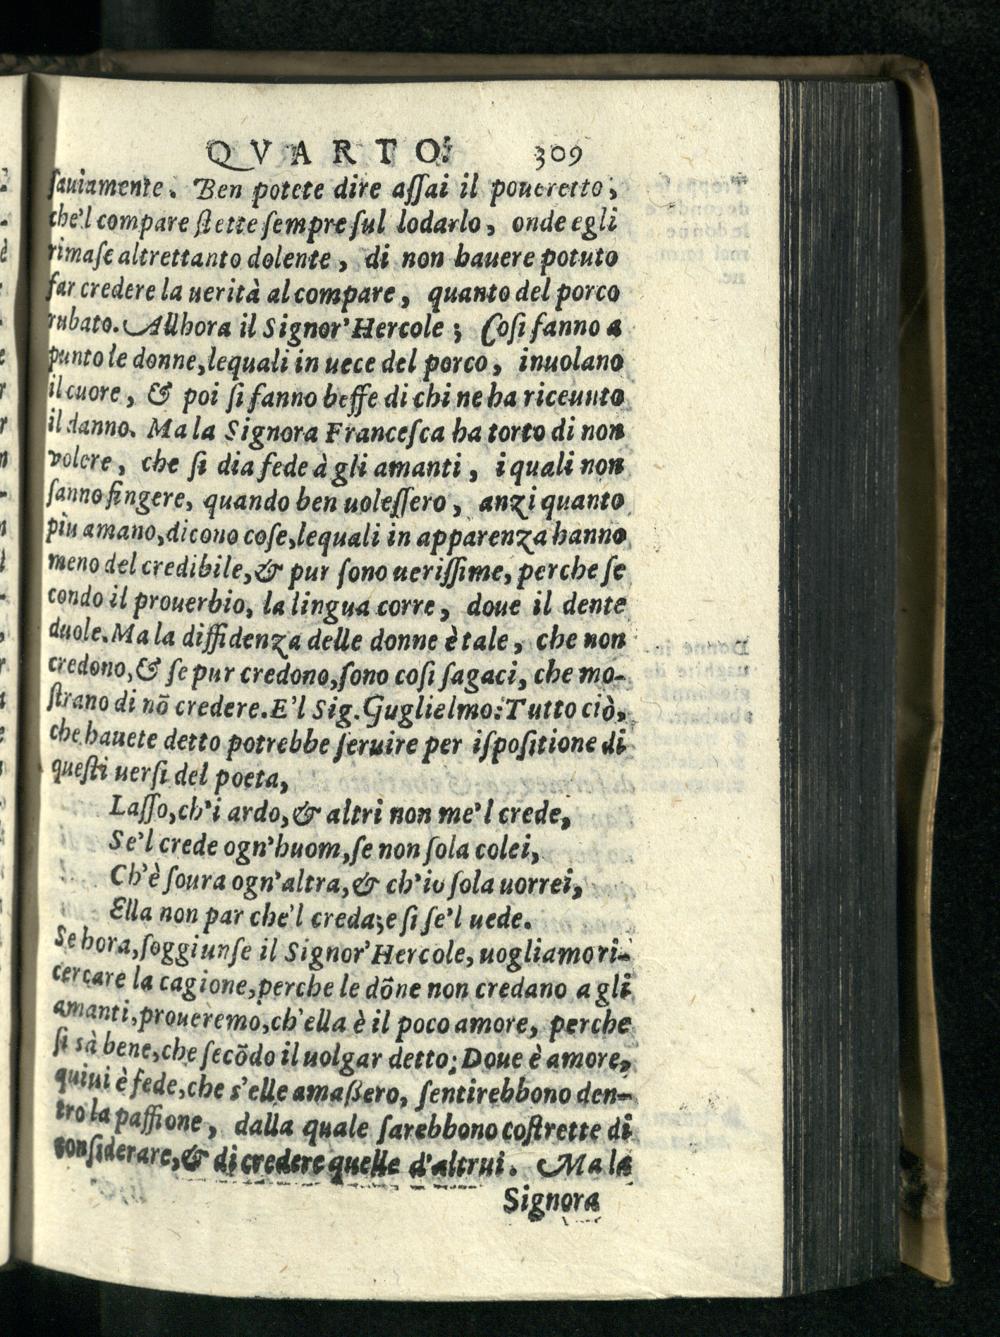 QVARTO. 309
ſauiamente. Ben potete dire aſſai il poueretto,
che'l compare ſtette ſempre ſul lodarlo, onde egli
rimaſe altrettanto dolente, di non hauere potuto
far credere la uerità al compare, quanto del porco
rubato. Allhora il Signor' Hercole; Coſi fanno a
punto le donne, lequali in uece del porco, inuolano
il cuore, & poi ſi fanno beffe di chi ne ha riceuuto
il danno. Ma la Signora Franceſca ha torto di non
volere, che ſi dia fede à gli amanti, i quali non
ſanno fingere, quando ben uoleſſero, anzi quanto
più amano, dicono coſe, lequali in apparenza hanno
meno del credibile, & pur ſono ueriſſime, perche ſe
condo il prouerbio, la lingua corre, doue il dente
duole. Ma la diffidenza delle donne è tale, che non
credono, & ſe pur credono, ſono coſi ſagaci, che mo-
ſtrano di nō credere. E'l Sig. Guglielmo: Tutto ciò,
che hauete detto potrebbe ſeruire per iſpoſitione di
queſti uerſi del poeta,
Laſſo, ch'i ardo, & altri non me'l crede,
Se'l crede ogn'huom, ſe non ſola colei,
Ch'è ſoura ogn'altra, & ch'io ſola uorrei,
Ella non par che'l creda; e ſi ſe'l uede.
Se hora, ſoggiunſe il Signor' Hercole, uogliamo ri-
cercare la cagione, perche le dōne non credano a gli
amanti, proueremo, ch'ella è il poco amore, perche
ſi sà bene, che ſecōdo il uolgar detto; Doue è amore,
quiui è fede, che s'elle amaßero, ſentirebbono den-
tro la paſſione, dalla quale ſarebbono coſtrette di
conſiderare, & di credere quelle d'altrui. Ma la
Signora